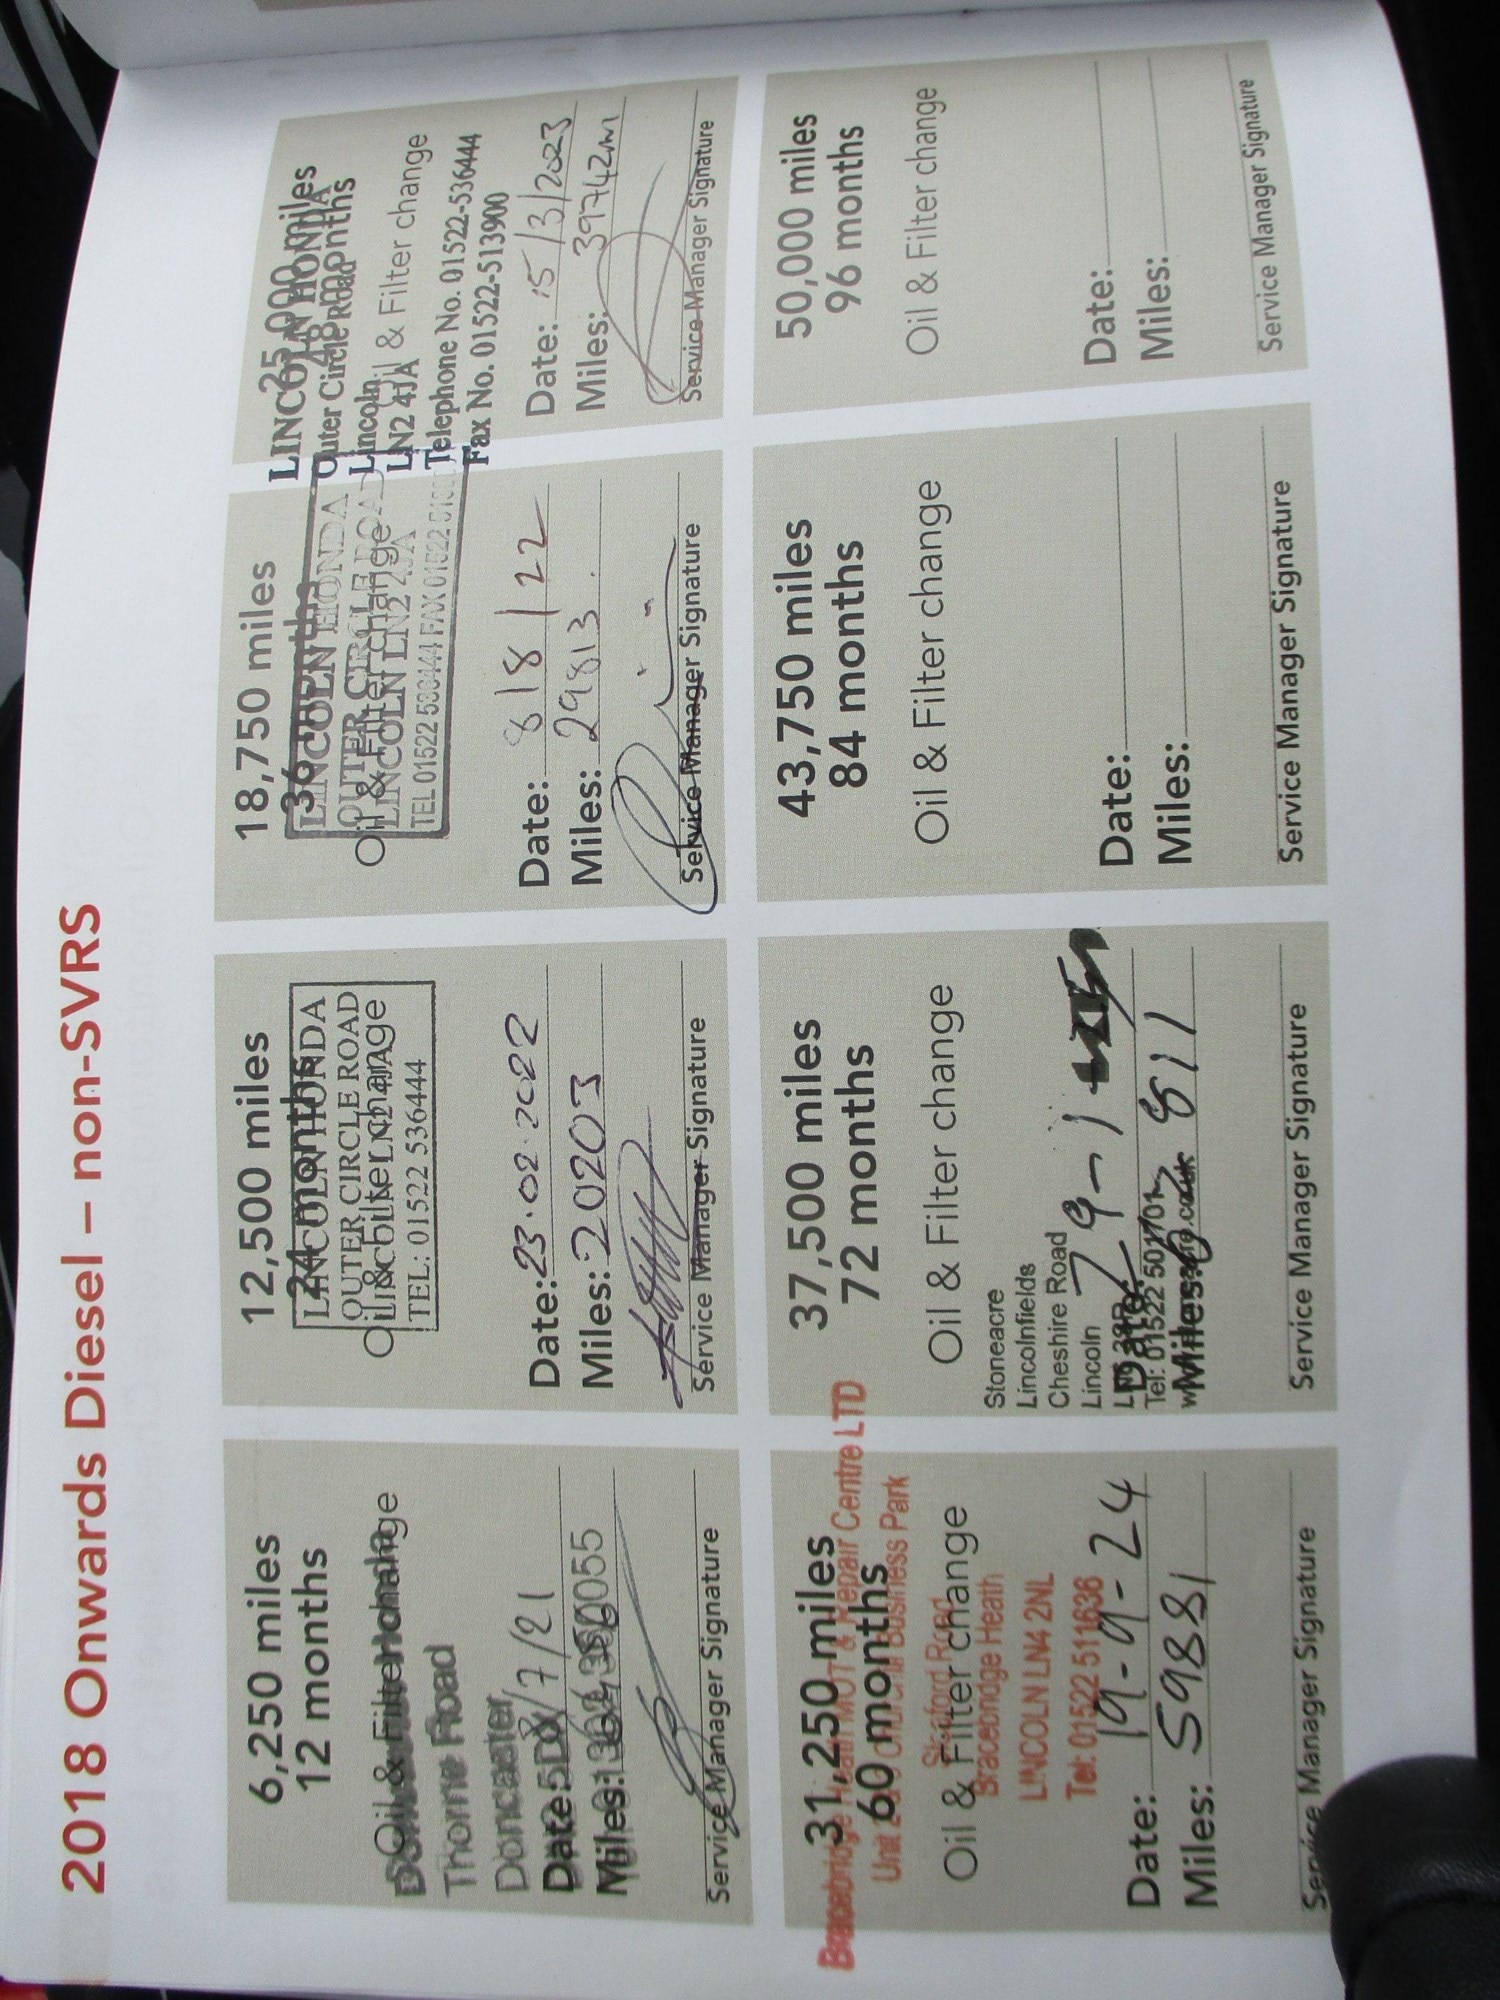 2018 Onwards Diesel – non-SVRS
6,250 miles
12 months
Oil & Filter change
Thorne Road
Doncaster
Date: /7/21
Miles:
Service Manager Signature
12,500 miles
24 months
LINCOLN HONDA
OUTER CIRCLE ROAD
Oil & Filter change
LINCOLN LN2 4JA
TEL: 01522 536444
Date: 23.02.2022
Miles: 20203
Service Manager Signature
18,750 miles
36 months
LINCOLN HONDA
OUTER CIRCLE ROAD
Oil & Filter change
LINCOLN LN2 4JA
TEL 01522 536444 FAX 01522
Date: 8/8/22
Miles: 29813
Service Manager Signature
25,000 miles
LINCOLN HONDA
48 months
Outer Circle Road
Lincoln
Oil & Filter change
LN2 4JA
Telephone No. 01522-536444
Fax No. 01522-513900
Date: 15/3/2023
Miles: 39742m
Service Manager Signature
31,250 miles
60 months
Bracebridge Heath MOT & Repair Centre LTD
Business Park
Oil & Filter change
Bracebridge Heath
LINCOLN LN4 2NL
Tel: 01522 511636
Date: 19-9-24
Miles: 59881
Service Manager Signature
37,500 miles
72 months
Oil & Filter change
Stoneacre
Lincolnfields
Cheshire Road
Lincoln
Date: 29-1-
Tel: 01522 501701
Miles: 811
Service Manager Signature
43,750 miles
84 months
Oil & Filter change
Date:
Miles:
Service Manager Signature
50,000 miles
96 months
Oil & Filter change
Date:
Miles:
Service Manager Signature